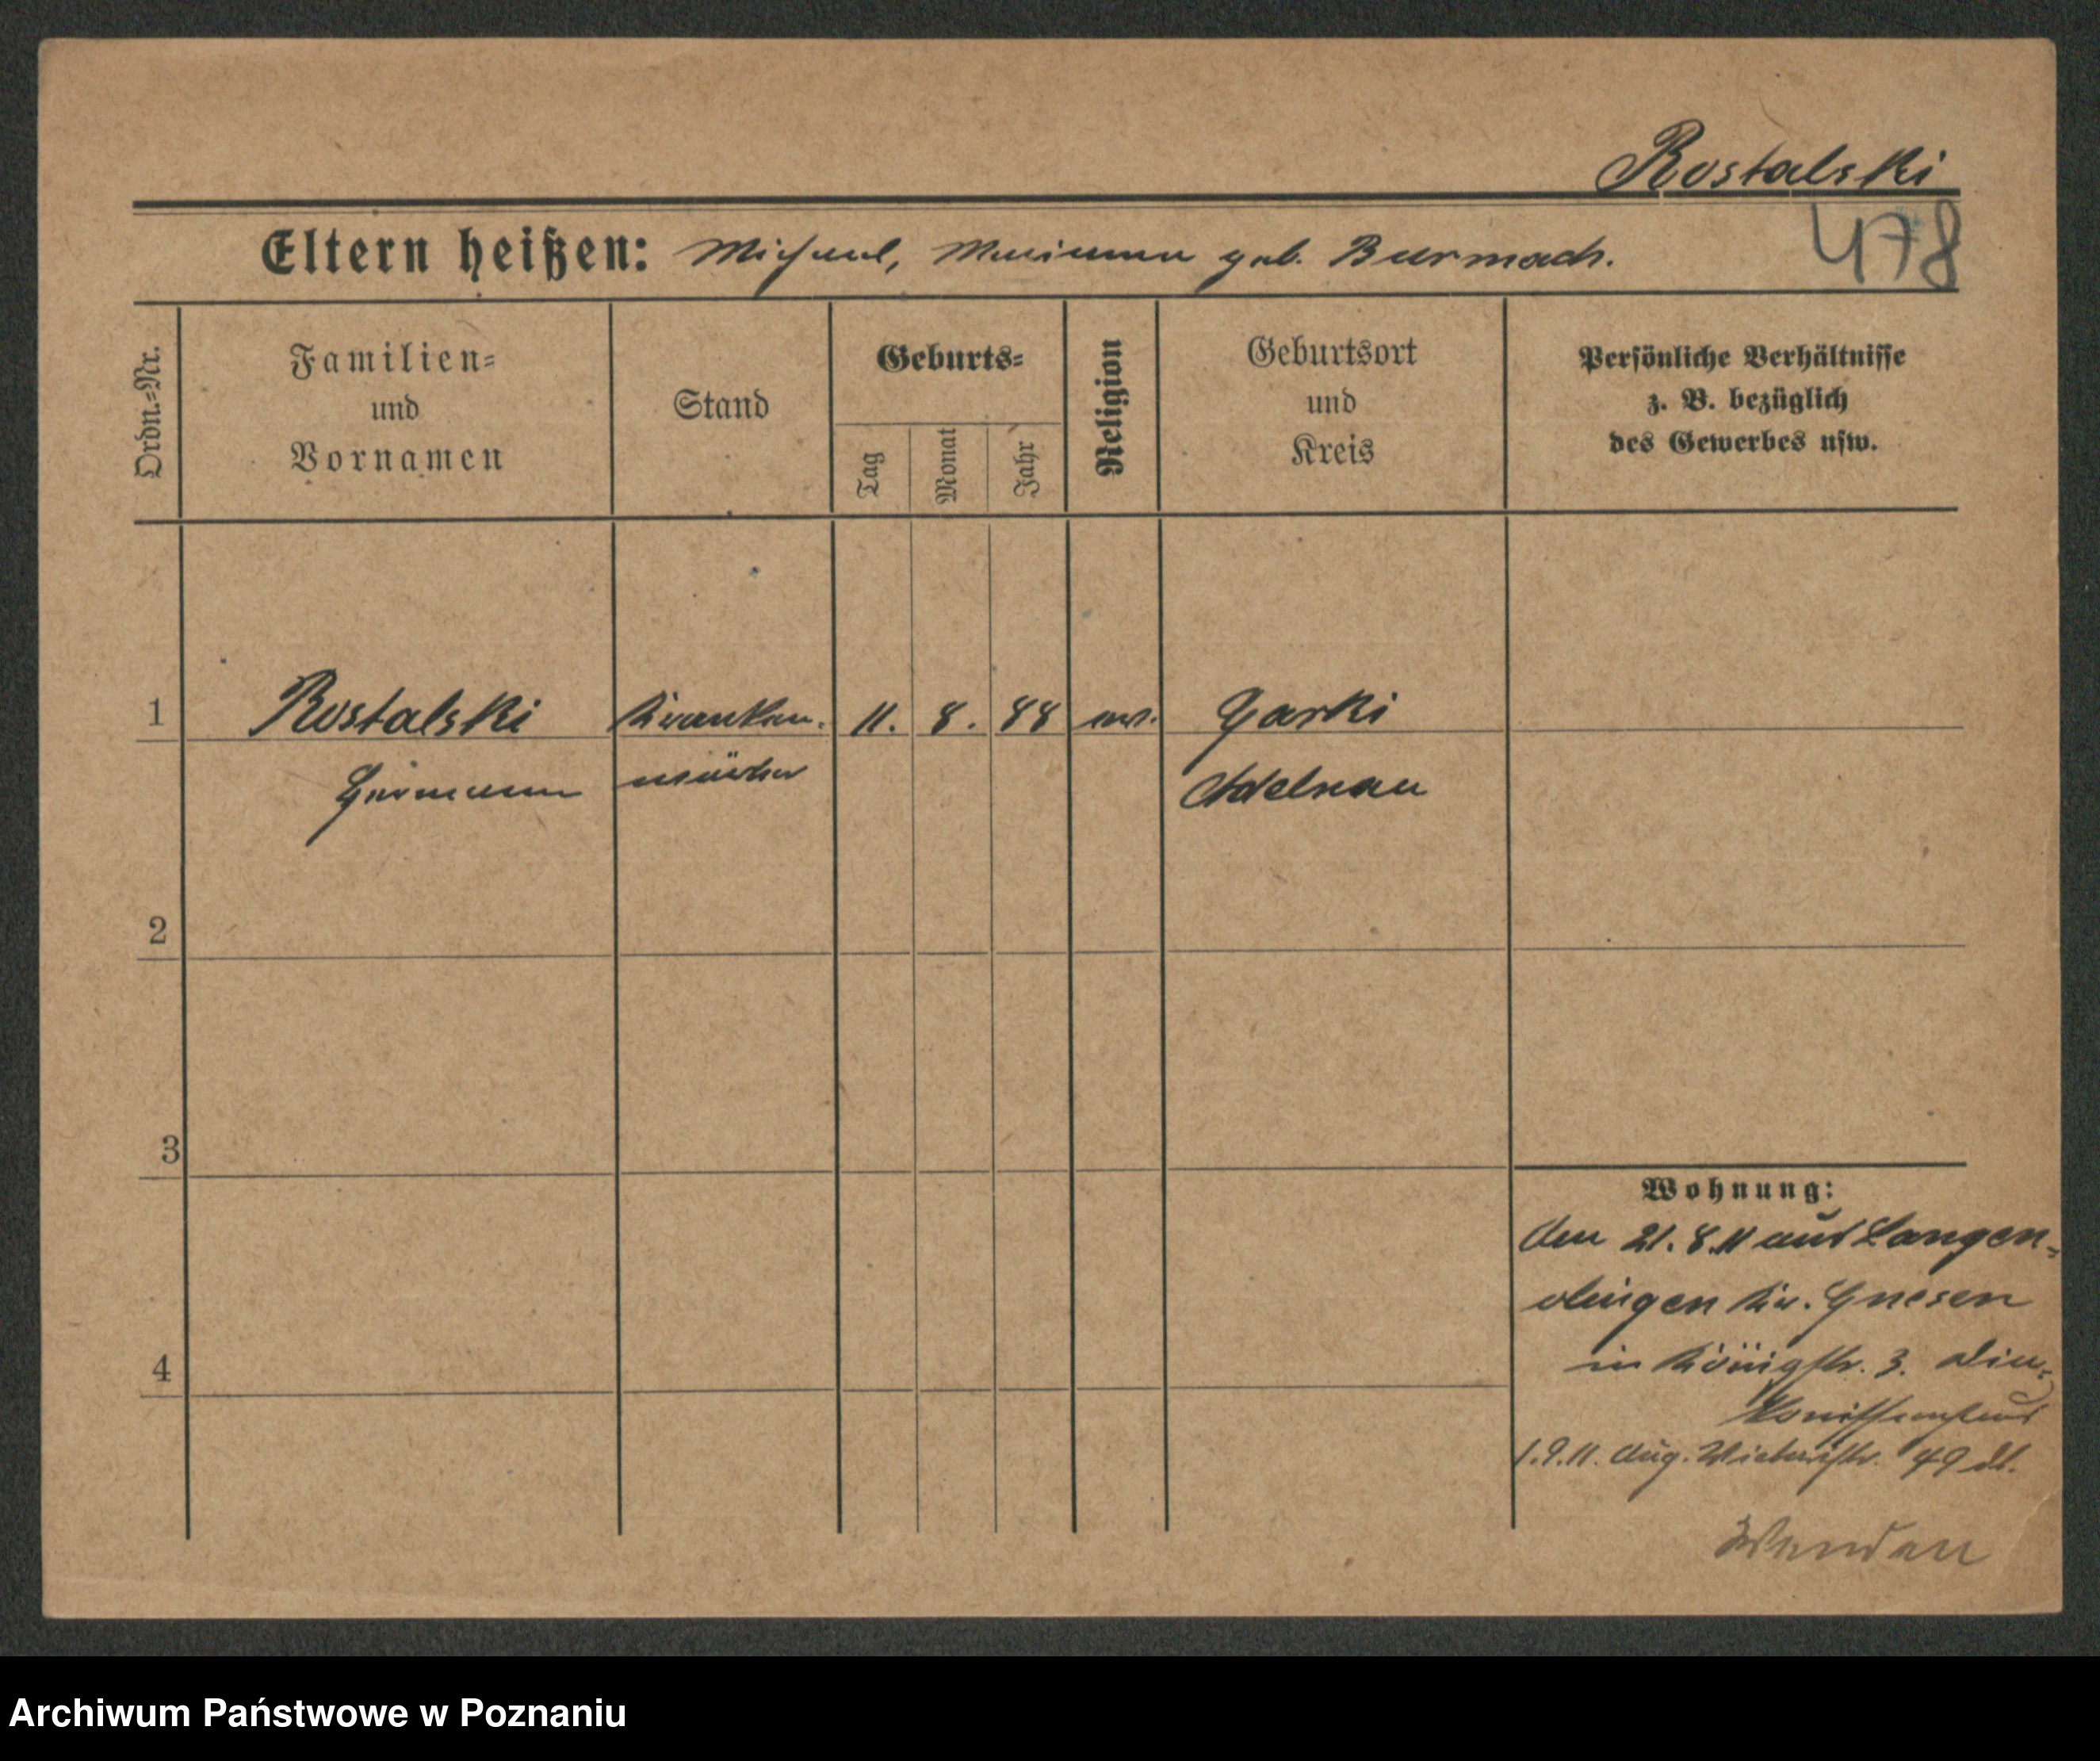 Rostalski
478
Eltern heißen: Michael, Marianna geb. Burmach.
Ordn.-Nr.
Familien=
und
Vornamen
Stand
Geburts=
Tag
Monat
Jahr
Religion
Geburtsort
und
Kreis
Persönliche Verhältnisse
z. B. bezüglich
des Gewerbes usw.
1 Rostalski Kranken. 11. 8. 88 ev. Garki
Hermann wärter Adelnau
2
3
4
Wohnung:
den 21.8.11 aus Langen-
olingen Kr. Gnesen
in Königstr. 3. Dia-
konissenhaus
1.9.11. Aug. Viktoriastr. 49
Wenden
Archiwum Państwowe w Poznaniu